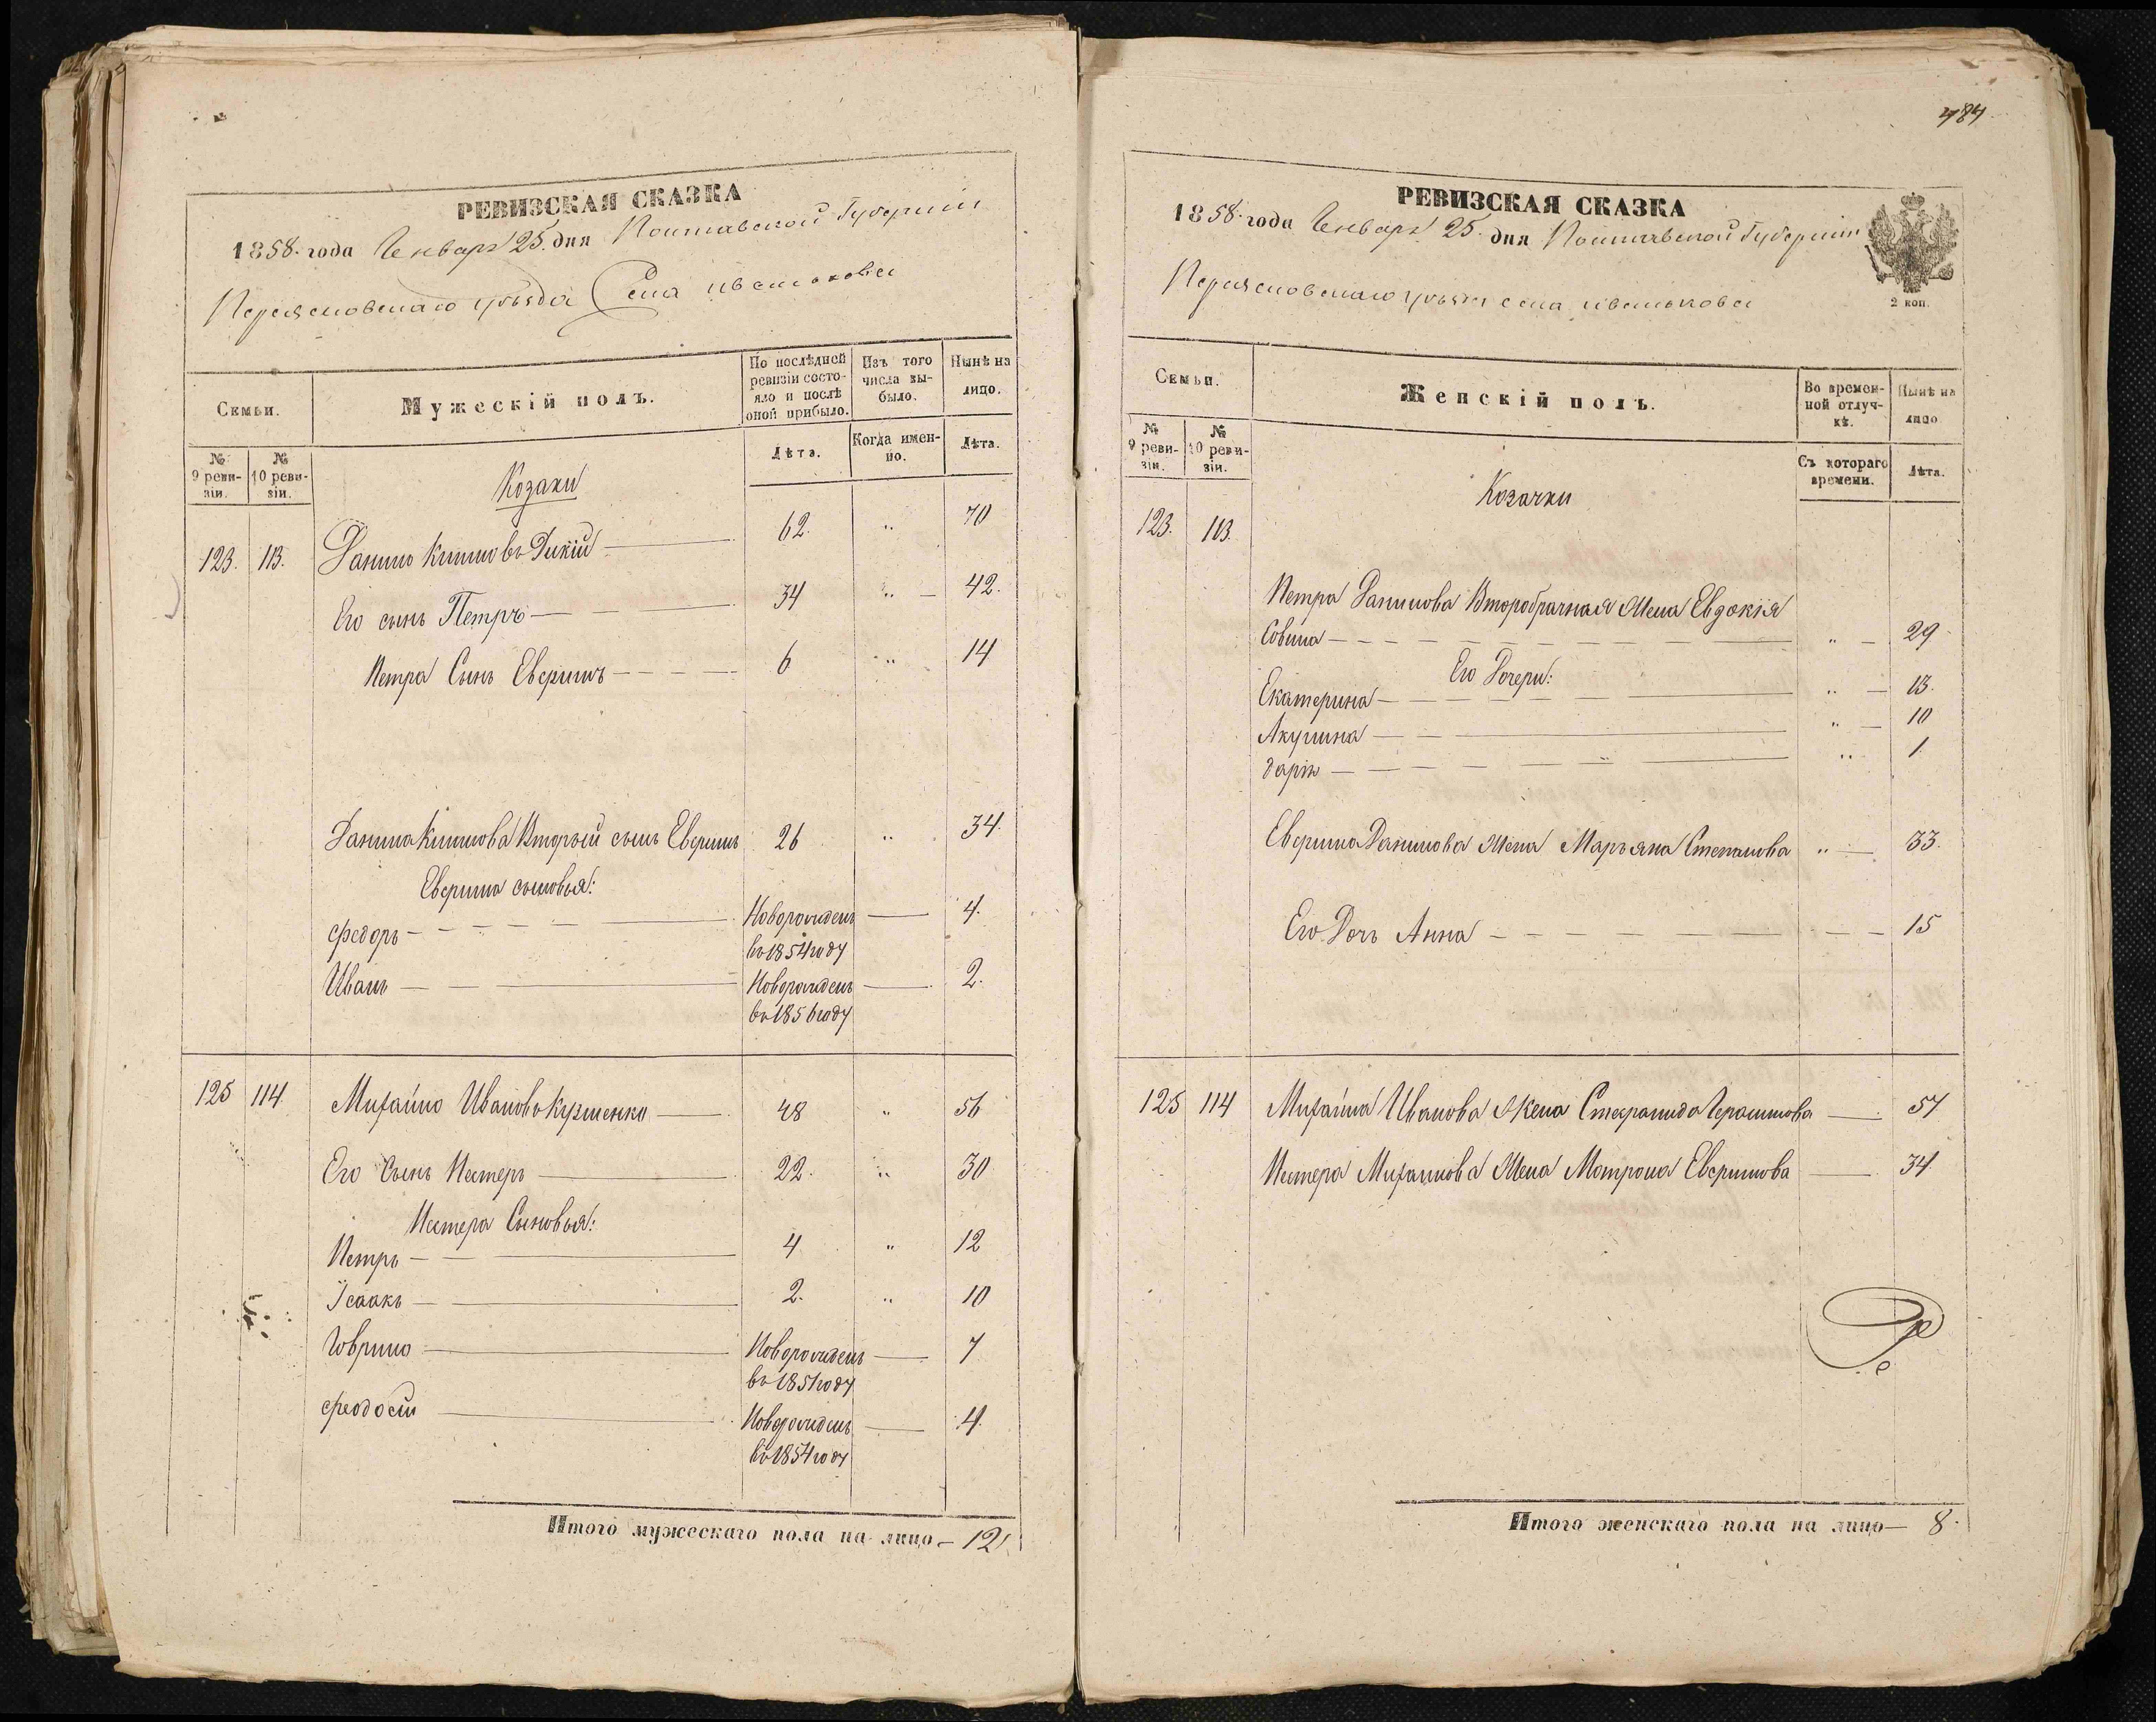 РЕВИЗСКАЯ СКАЗКА
1858 года Генваря 25 дня Полтавской Губерніи
Переясловскаго уѣзда Села
Семьи.
Мужескій полъ.
По послѣдней ревизіи состояло и послѣ оной прибыло.
Изъ того числа выбыло.
Нынѣ на лицо.
№ 9 ревизіи.
№ 10 ревизіи.
Лѣта.
Когда именно.
Лѣта.
Козаки
123. 113. Данило Климовъ Дикій — 62. „ 70
Его сынъ Петръ — 34 „ — 42.
Петра Сынъ Аверимъ — 6 „ 14
Данила Климова Вторый сынъ 26 „ 34.
сыновья:
Федоръ — Новорожденъ — 4.
въ 1854 году
Иванъ — Новорожденъ — 2.
въ 1856 году
125 114 Михайло Ивановъ — 48 „ 56
Его Сынъ Нестеръ — 22. „ 30
Нестера Сыновья:
Петръ — 4 „ 12
Ісаакъ — 2. „ 10
Гаврило — Новорожденъ — 7
въ 1851 году
Феодосій — Новорожденъ — 4.
въ 1854 году
Итого мужескаго пола на лицо — 12
484
РЕВИЗСКАЯ СКАЗКА
1858 года Генваря 25 дня Полтавской Губерніи
2 коп.
Переясловскаго уѣзда села
Семьи.
Женскій полъ.
Во временной отлучкѣ.
Нынѣ на лицо
№ 9 ревизіи.
№ 10 ревизіи.
Съ котораго времени.
Лѣта.
Козачки
123. 113.
Петра Данилова Второбрачная Жена Евдокія
— „ — 29
Его Дочери:
Екатерина — „ — 13.
Акулина — „ — 10
Дарія — „ 1.
Данилова Жена Марьяна Степанова „ — 33.
Его Дочь Анна — 15
125 114 Михайла Иванова Жена Степанида Герасимова — 57
Нестера Михайлова Жена Матрона — 34
Итого женскаго пола на лицо — 8.